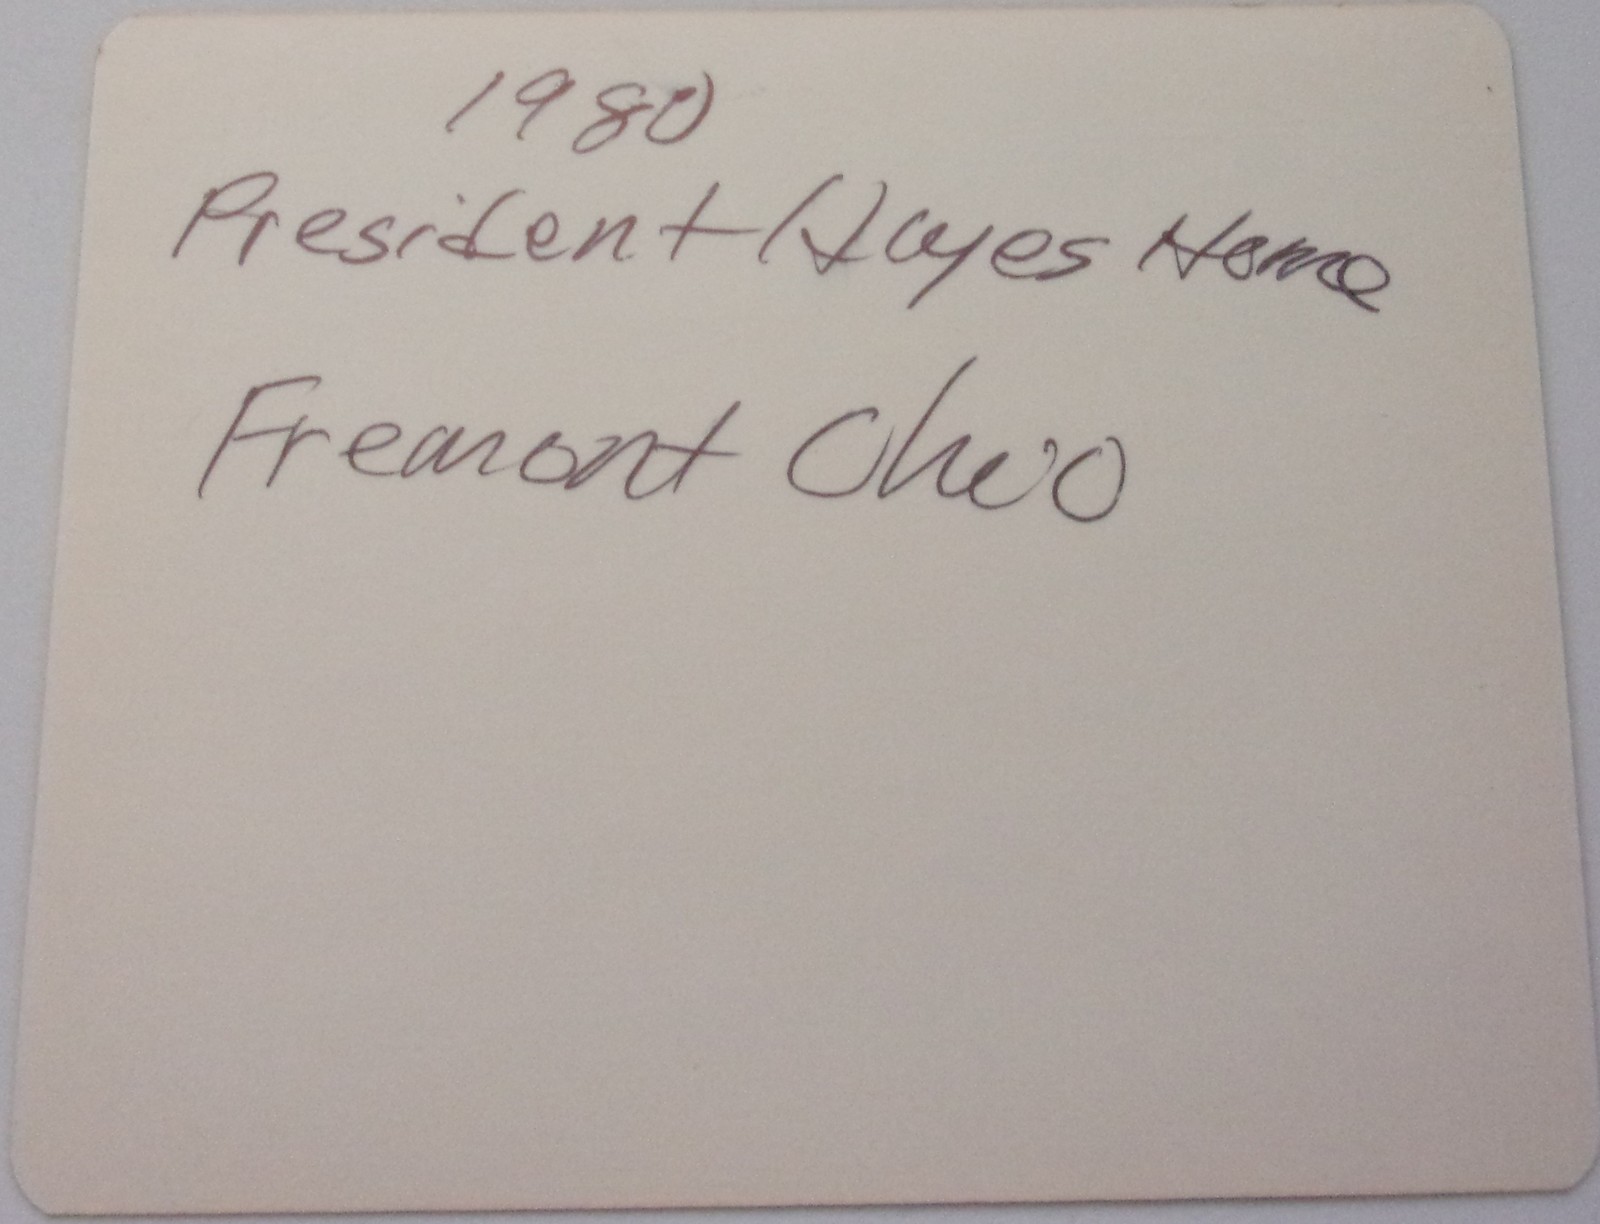 1980
President Hayes Home
Fremont Ohio